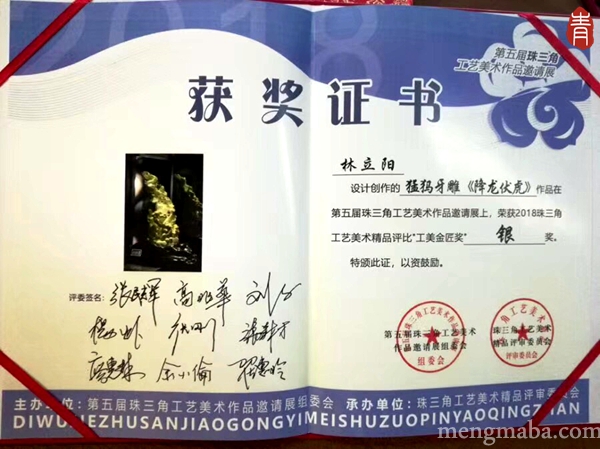 2018
青
第五届珠三角
工艺美术作品邀请展
获奖证书
林立阳
设计创作的 猛犸牙雕《降龙伏虎》作品在
第五届珠三角工艺美术作品邀请展上，荣获2018珠三角
工艺美术精品评比“工美金匠奖” 银 奖。
特颁此证，以资鼓励。
评委签名：
第五届珠三角工艺美术
作品邀请展组委会
组委会
珠三角工艺美术
精品评审委员会
评审委员会
主办单位：第五届珠三角工艺美术作品邀请展组委会 承办单位：珠三角工艺美术精品评审委员会
DIWUJIEZHUSANJIAOGONGYIMEISHUZUOPINYAOQINGZHAN
mengmaba.com